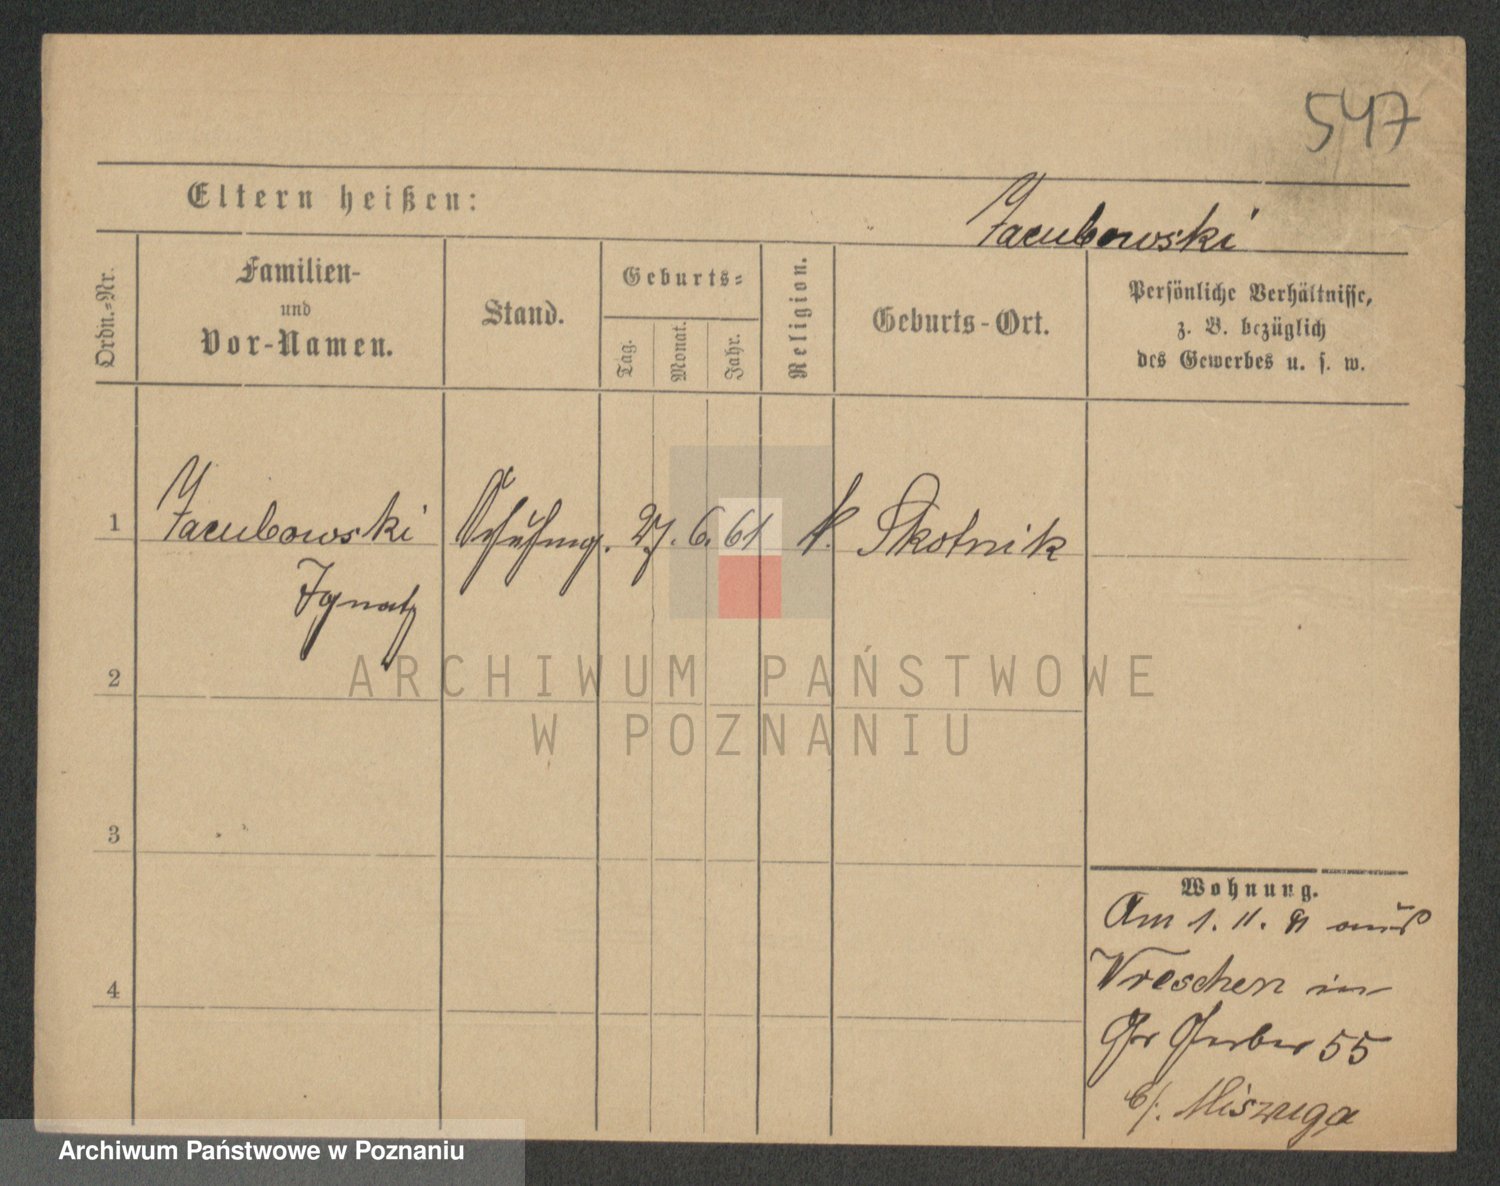 547
Eltern heißen:
Jacubowski
Ordn.-Nr.
Familien-
und
Vor-Namen.
Stand.
Geburts-
Tag.
Monat.
Jahr.
Religion.
Geburts-Ort.
Persönliche Verhältnisse,
z. B. bezüglich
des Gewerbes u. s. w.
1 Jacubowski Schuhm. 27. 6. 61 k. Skotnik
Ignatz
2
3
4
Wohnung.
Am 1. 11. 91 aus
Wreschen in
Gr Gerber 55
b/. Miszuga
ARCHIWUM PAŃSTWOWE
W POZNANIU
Archiwum Państwowe w Poznaniu